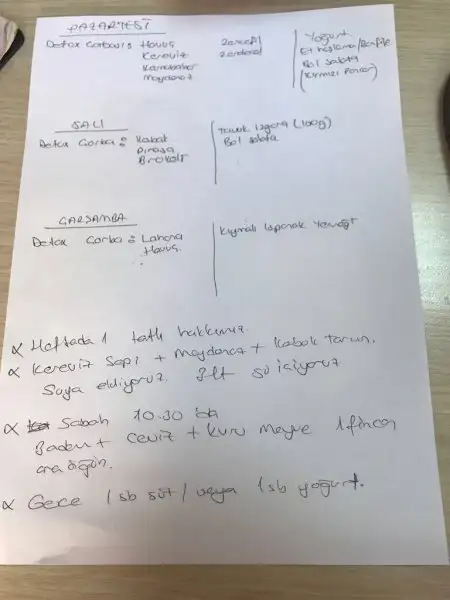 PAZARTESİ
Detox Çorbası: Havuç Zencefil
Kereviz Zerdeçal
Karnabahar
Maydanoz
Yoğurt
Et haşlama / Bonfile
Bol salata
(Kırmızı Pancar)
SALI
Detox Çorba: Kabak
Pırasa
Brokoli
Tavuk Izgara (100g)
Bol salata
ÇARŞAMBA
Detox Çorba: Lahana
Havuç
Kıymalı Ispanak Yoğurt
Haftada 1 tatlı hakkınız.
Kereviz Sapı + Maydanoz + Kabak Tarçın.
Suya ekliyoruz. 3 lt su içiyoruz
Sabah 10.30 da
Badem + Ceviz + Kuru Meyve 1 fincan
ara öğün.
Gece 1 sb süt / veya 1 sb yoğurt.